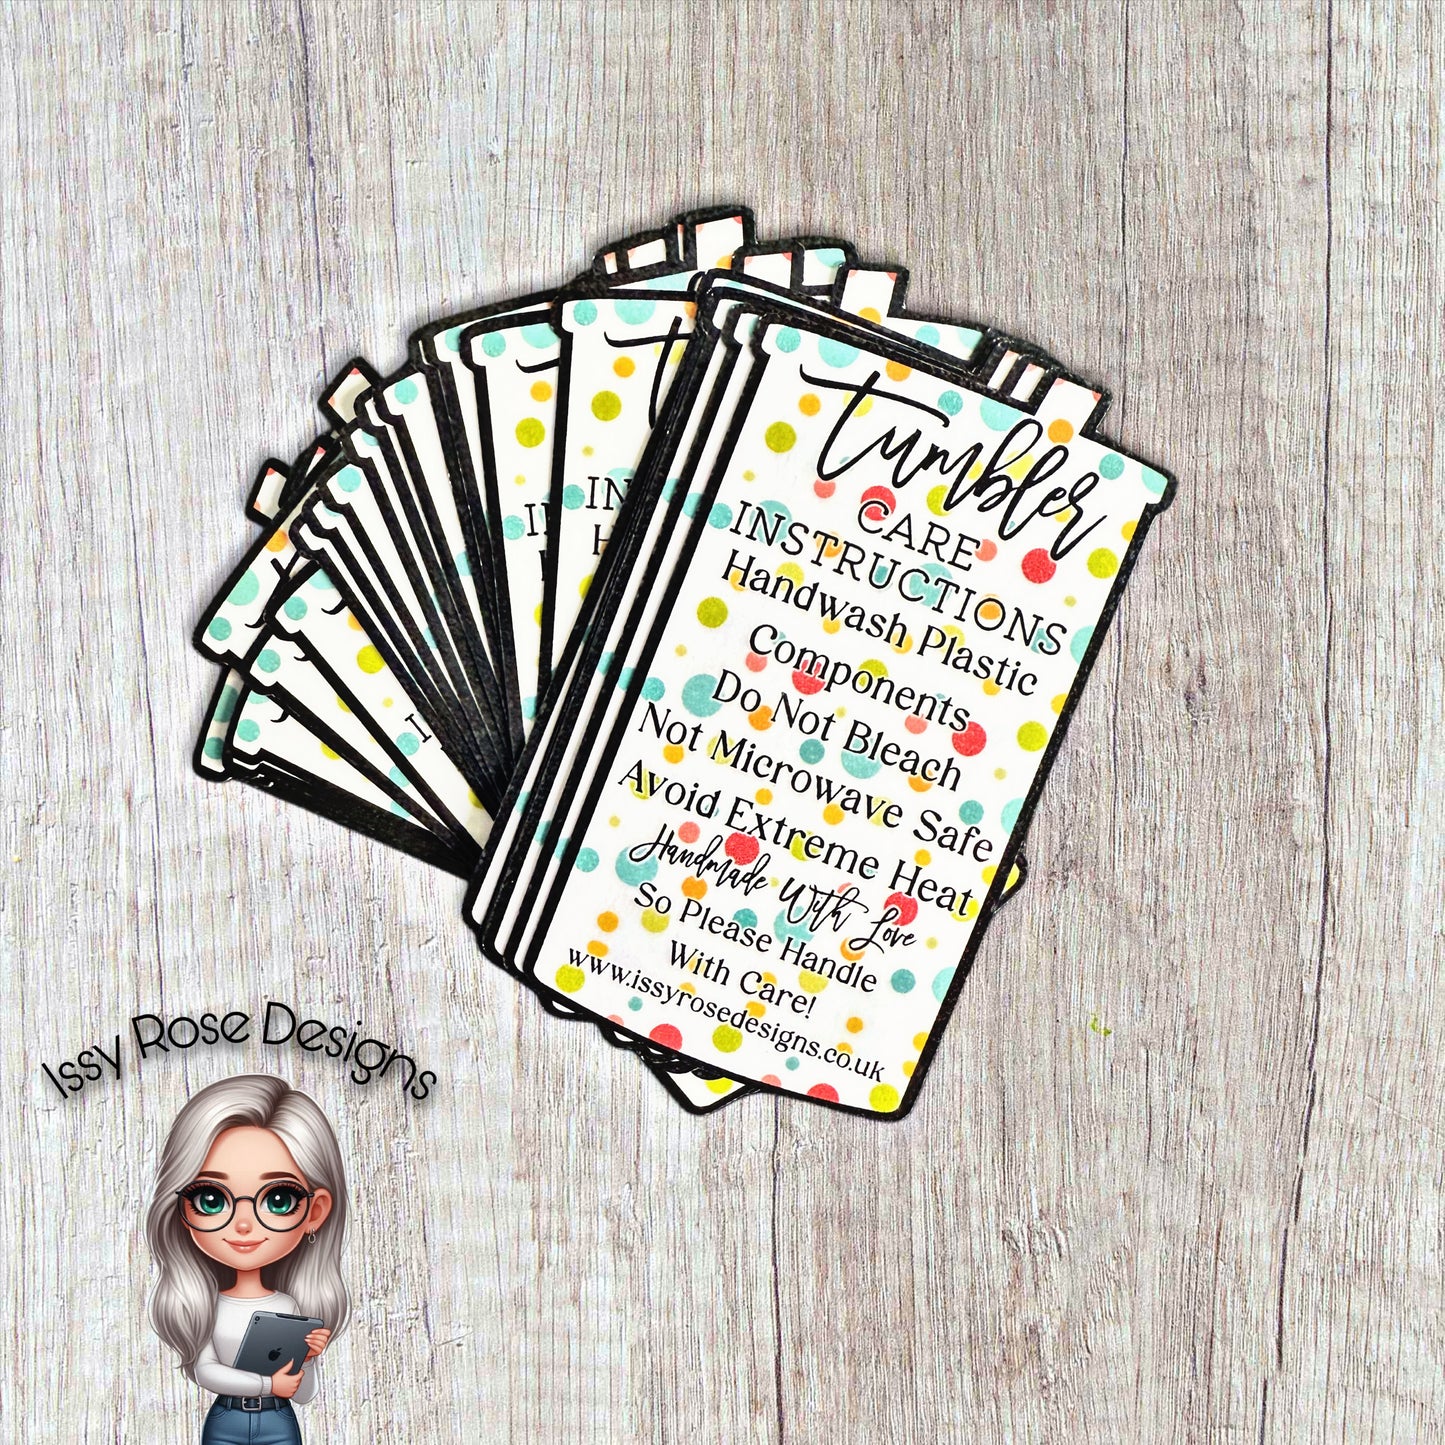 tumbler
CARE
INSTRUCTIONS
Handwash Plastic
Components
Do Not Bleach
Not Microwave Safe
Avoid Extreme Heat
Handmade With Love
So Please Handle
With Care!
www.issyrosedesigns.co.uk
Issy Rose Designs